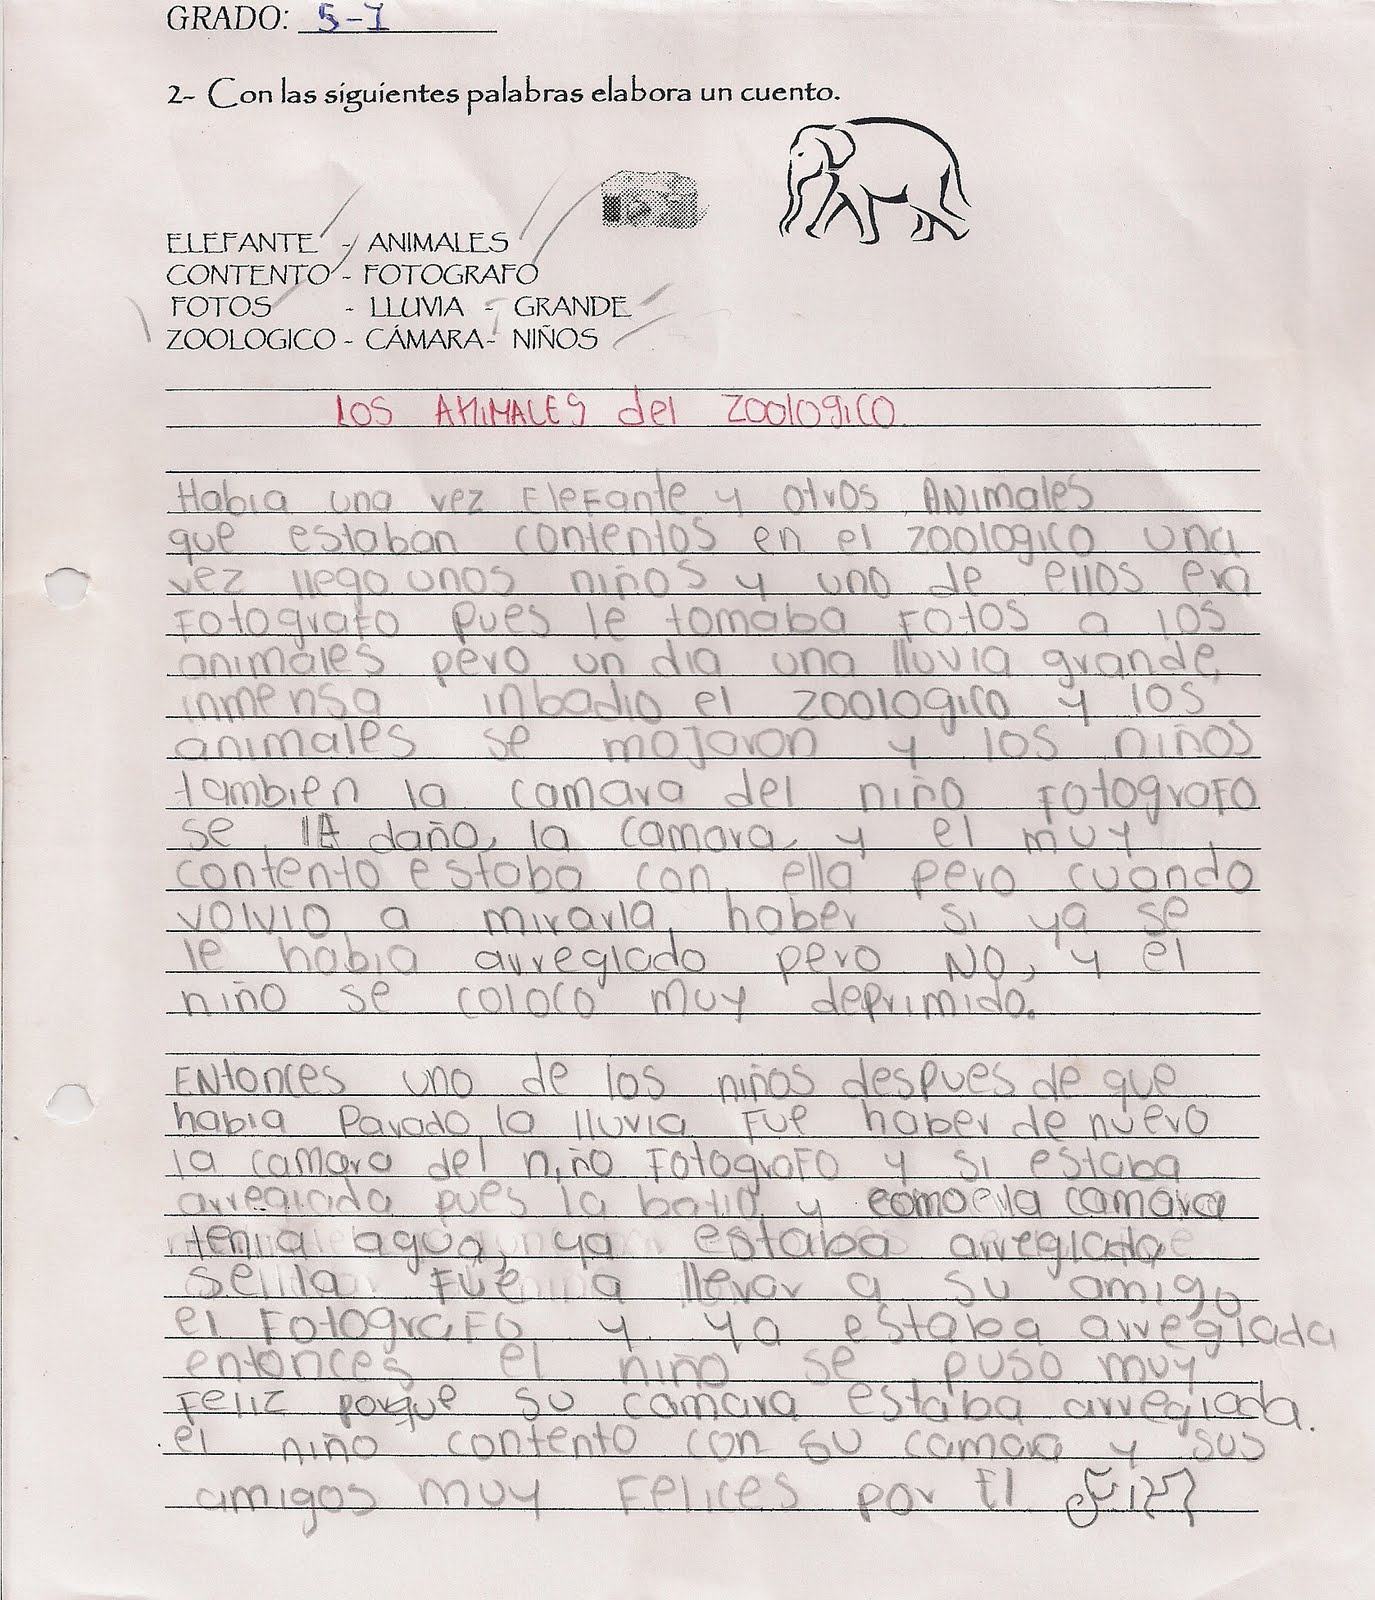 GRADO: 5-1
2- Con las siguientes palabras elabora un cuento.
ELEFANTE - ANIMALES
CONTENTO - FOTOGRAFO
FOTOS - LLUVIA - GRANDE
ZOOLOGICO - CÁMARA - NIÑOS
LOS ANIMALES del ZOOlOgiCO
Habia una vez ElEFante y otros ANimales
que estaban contentos en el zoologico una
vez llego unos niños y uno de ellos era
Fotografo pues le tomaba Fotos a los
animales pero un dia una lluvia grande,
inmensa inbadio el zoologico y los
animales se mojaron y los niños
tambien la camara del niño FotograFo
se lA daño, la camara y el muy
contento estaba con ella pero cuando
volvio a mirarla haber si ya se
le habia arreglado pero NO, y el
niño se coloco muy deprimido.
ENtonces uno de los niños despues de que
habia Parado la lluvia Fue haber de nuevo
la camara del niño FotograFo y si estaba
arreglada pues la batio y como la camara
tenia agua, ya estaba arreglada
se la Fue a llevar a su amigo
el FotograFo y ya estaba arreglada
entonces el niño se puso muy
Feliz porque su camara estaba arreglada.
el niño contento con su camara y sus
amigos muy Felices por El Fin